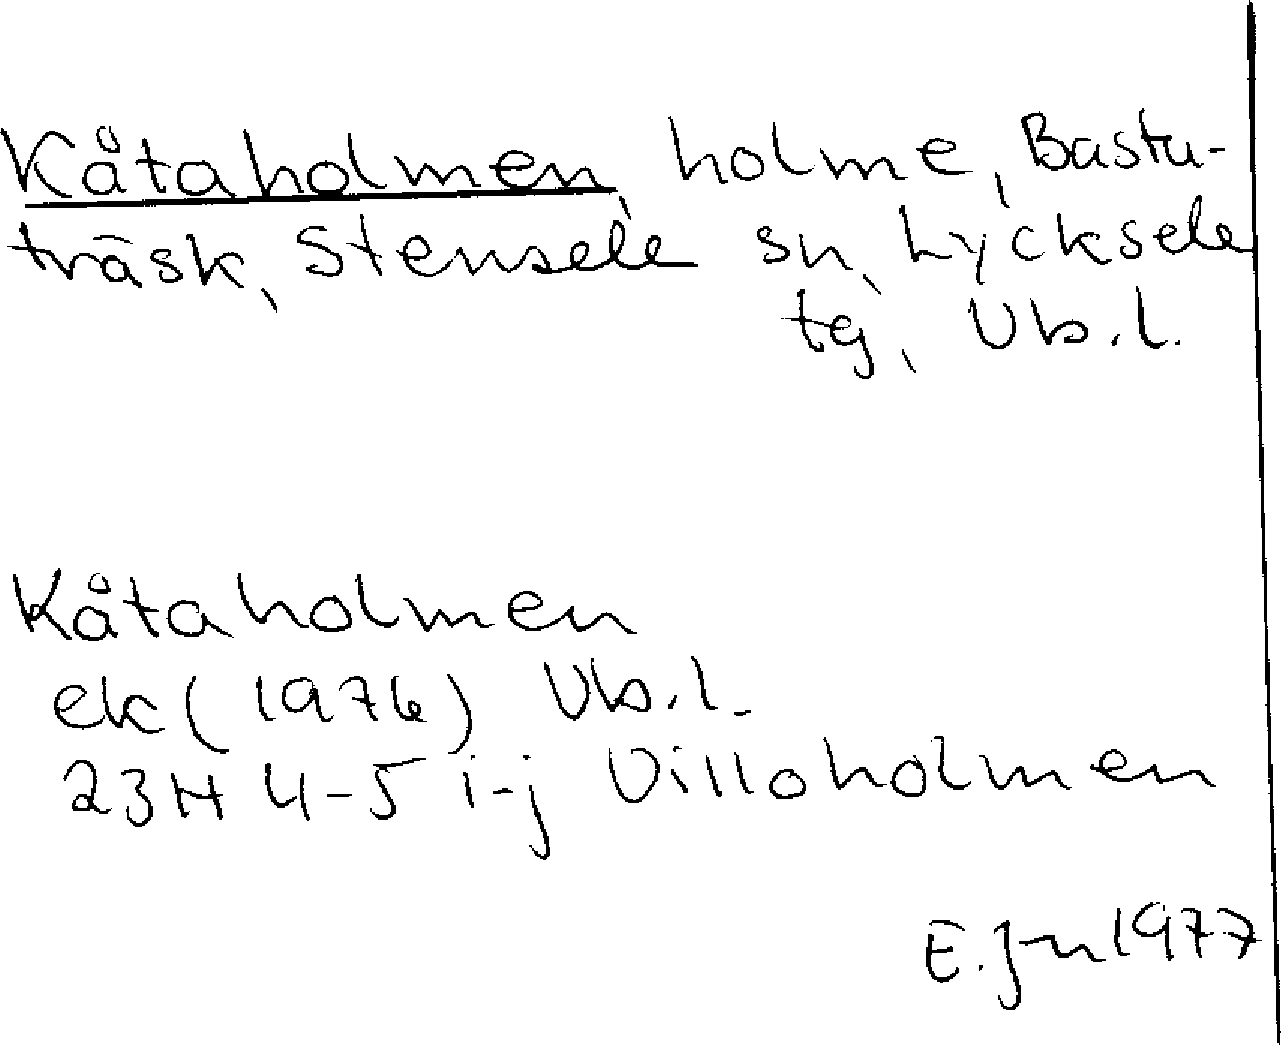 Kåtaholmen, holme, Bastu-
träsk, Stensele sn, Lycksele
tg, Vb.l.
Kåtaholmen
ek (1976) Vb.l.
23H 4-5 i-j Villoholmen
E. Jn 1977